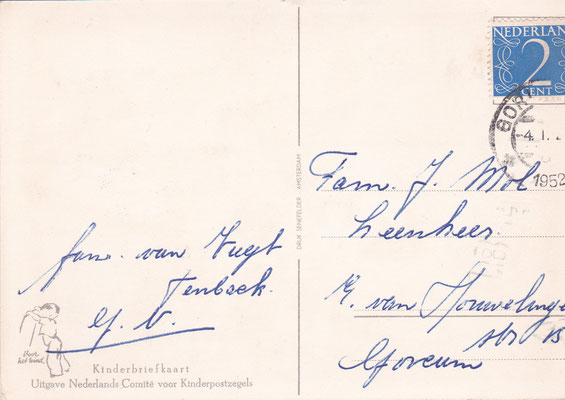 NEDERLAND
2
CENT
GOR
-4.1.
1952
Fam. J. Mol
Leenheer
v. van Houwelinge
str 13
Gorcum
DRUK SENEFELDER AMSTERDAM
fam. van Vugt
Tenback.
G. V.
Voor
het kind
Kinderbriefkaart
Uitgave Nederlands Comité voor Kinderpostzegels